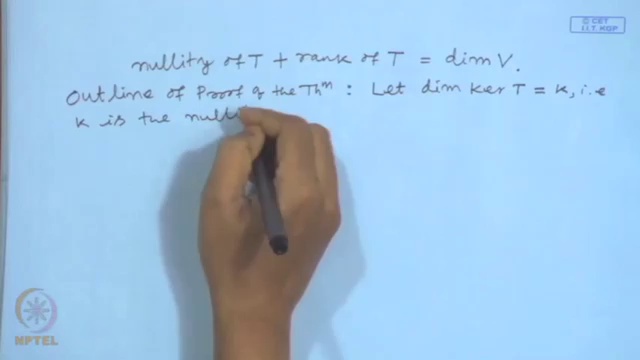 © CET
I.I.T. KGP
nullity of T + rank of T = dim V.
Outline of Proof of the Thm : Let dim ker T = k, i.e
k is the null
NPTEL